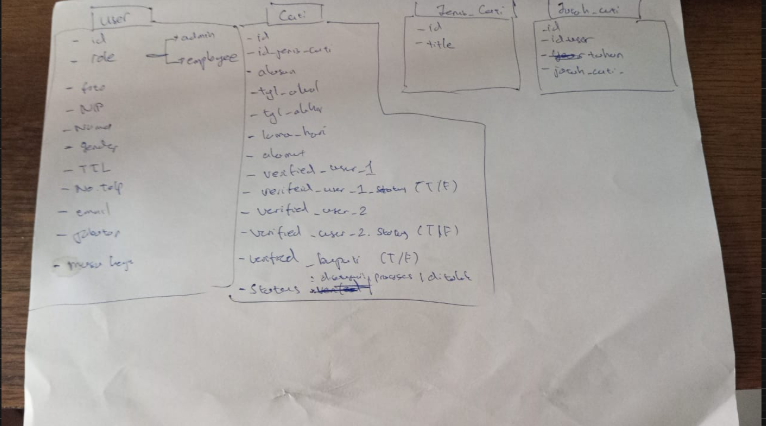 User
- id
- role
admin
employee
- foto
- NIP
- Nama
- Gender
- TTL
- No. Telp
- email
- jabatan
- masa kerja
Cuti
- id
- id_jenis_cuti
- alasan
- tgl_awal
- tgl_akhir
- lama_hari
- alamat
- verified_user_1
- verified_user_1_status (T/F)
- verified_user_2
- verified_user_2_status (T/F)
- verified_bupati (T/F)
- Status : disetujui, proses, ditolak
Jenis_Cuti
- id
- title
Jatah_cuti
- id
- id user
- tahun
- jatah_cuti